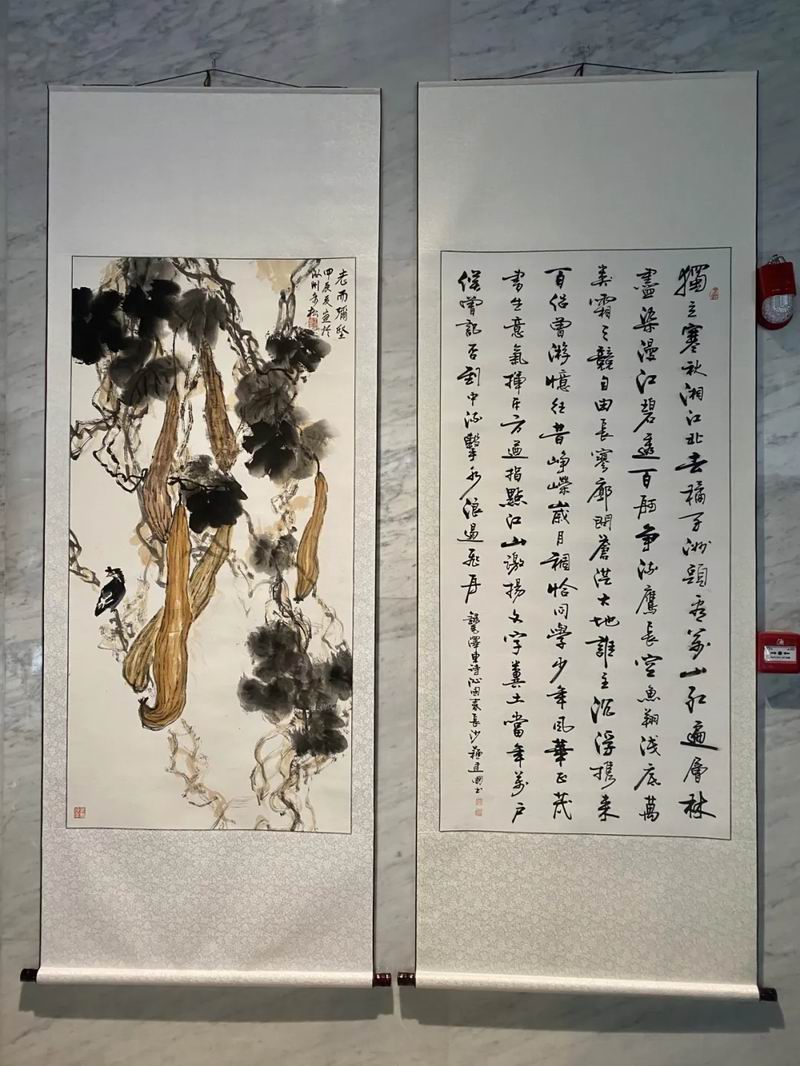 老而彌堅
甲辰夏画於
獨立寒秋湘江北去橘子洲頭看萬山紅遍層林
盡染漫江碧透百舸爭流鷹長空魚翔淺底萬
類霜天競自由悵寥廓問蒼茫大地誰主沉浮攜來
百侶曾游憶往昔崢嶸歲月稠恰同學少年風華正茂
書生意氣揮斥方遒指點江山激揚文字糞土當年萬戶
侯曾記否到中流擊水浪遏飛舟
澤東詩沁園春長沙